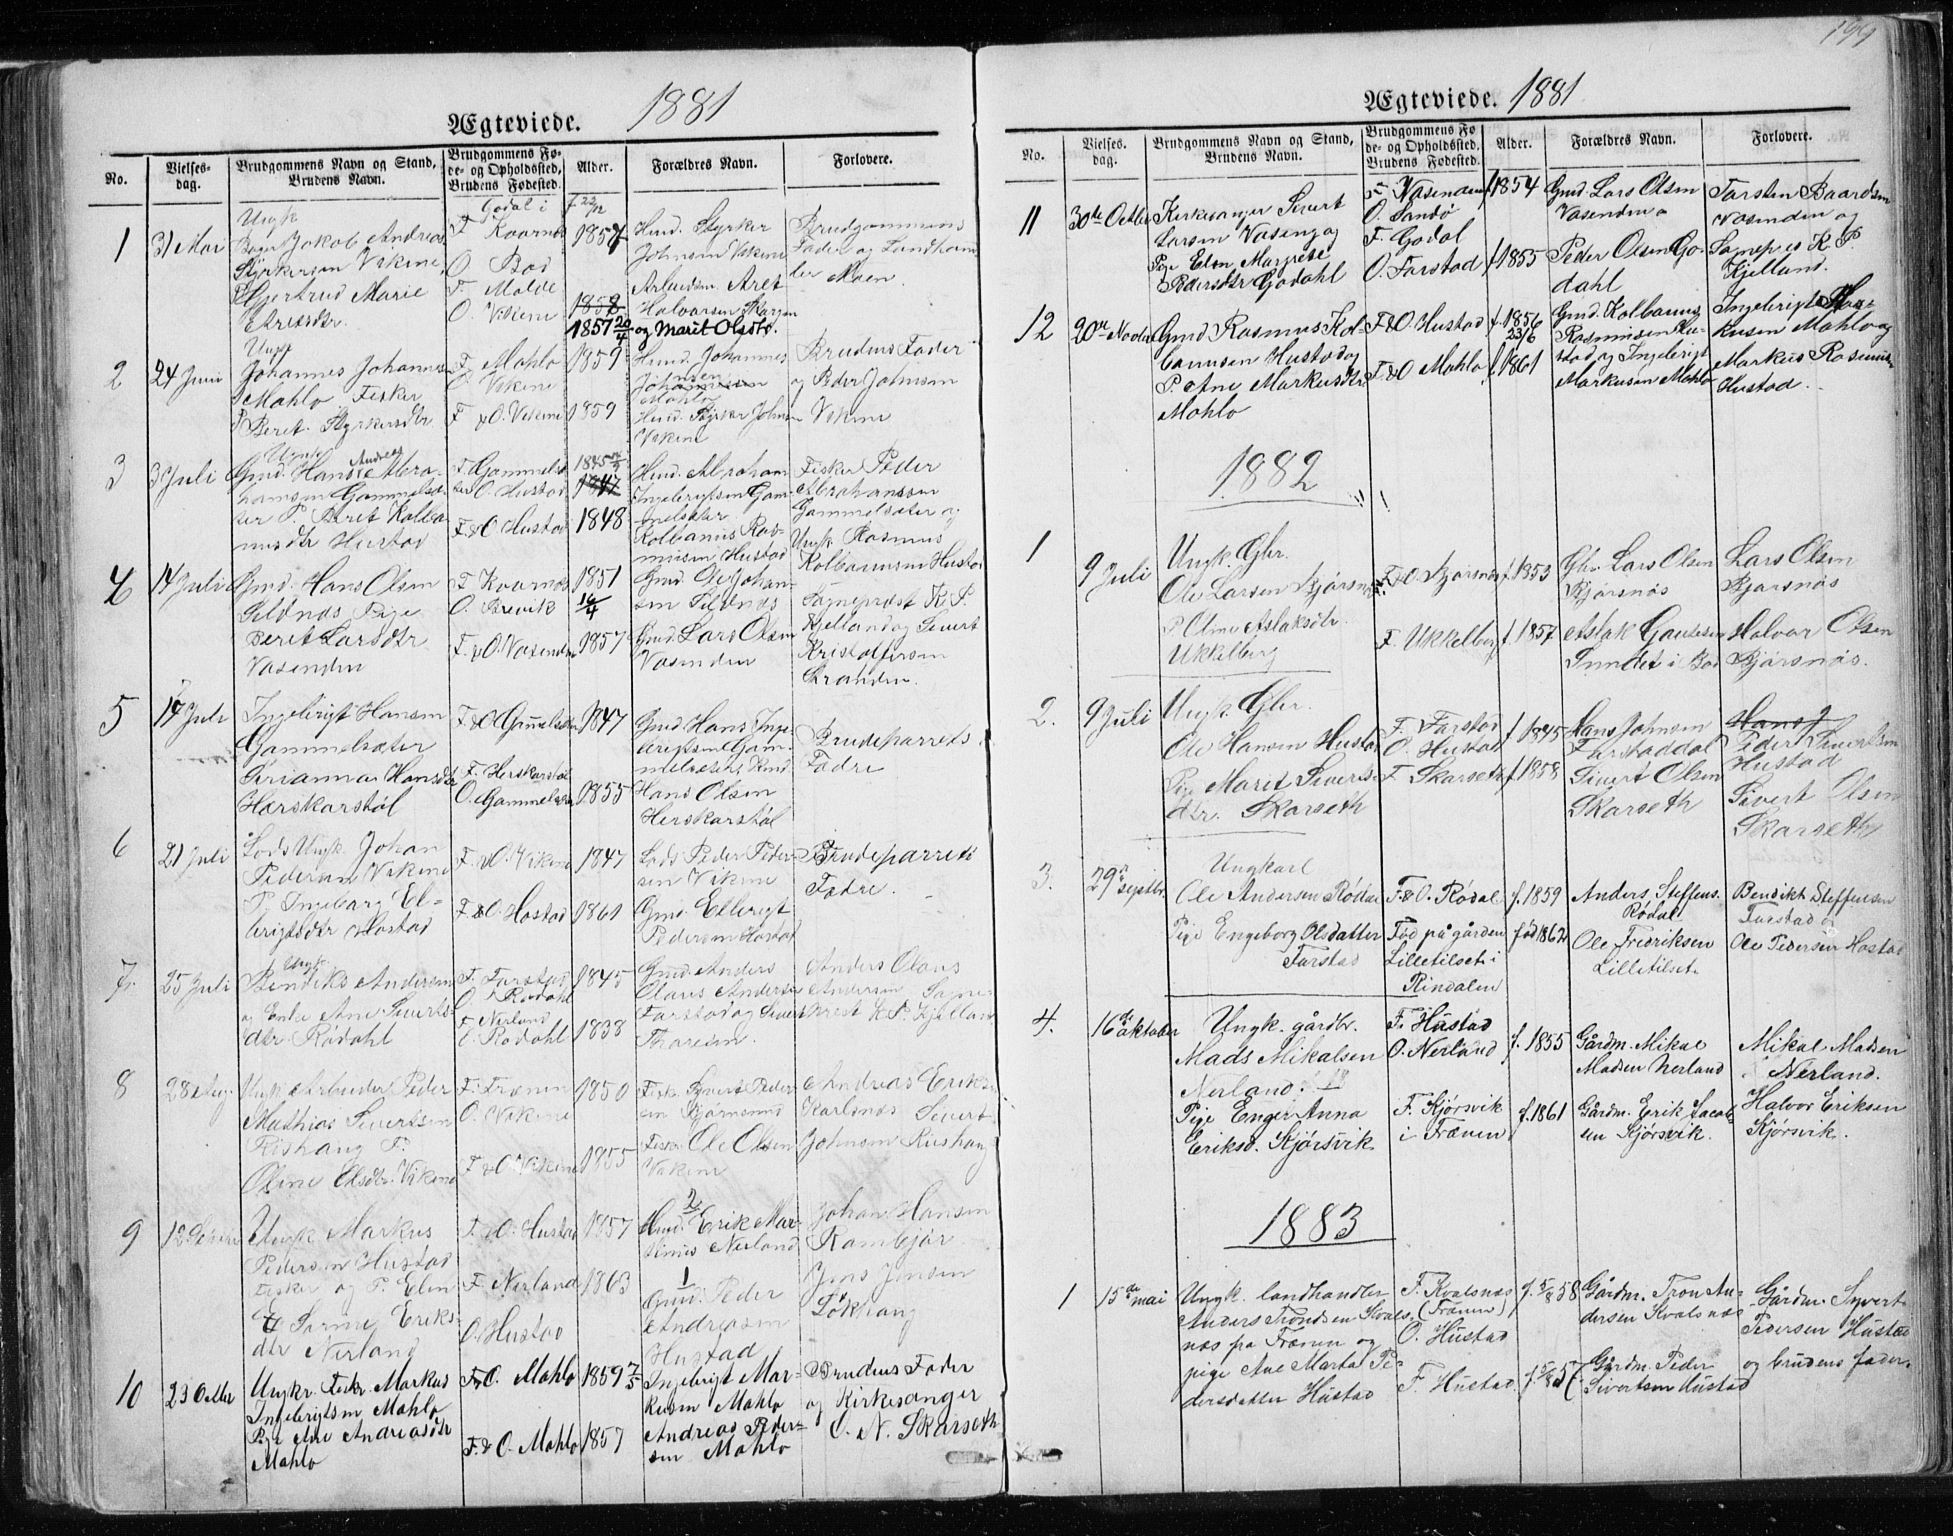 199
Ægteviede. 1881
No.
Vielses-
dag.
Brudgommens Navn og Stand,
Brudens Navn.
Brudgommens Fø-
de- og Opholdsted,
Brudens Fødested.
Alder.
Forældres Navn.
Forlovere.
1
31 Mai
Ungk
Jakob Andreas
Styrkersen Vikene,
P. Gjertrud Marie
Aretsdtr.
Godal i
F. Kvarnes
O. Bod
F. Molde
O. Vikene
f. 22/12
1857
1858
1857 20/4
Huusd. Styrker
Johnsen Vikene
Arbeidsm. Aret
Halvorsen Skarpen
og Marit Olsdtr.
Brudgommens
Fader og Landhand-
ler Moen
2
24 Juni
Ungk
Johannes Johannes
Mahlo Fisker
P Beret Styrkersdtr
F. Mahlo
O. Vikene
F &O. Vikene
1859
1859
Huusd. Johannes
Jensen
Johannesen
Mahlo
Huusd. Styrker Johnsen
Vikene
Brudens Fader
og Peder Johnsen
Vikene
3
3 Juli
Ungk Andreas
Gmd. Hans Abra-
hamsen Gammelsæ-
ter P. Beret Kolba
nusdtr Hustad
F. Gammelsæ
ter O. Hustad
F&O Hustad
1845
1847
1848
Huusd. Abraham
Ingebrigtsen Gam-
melsæter
Kolbanus Ras-
musen Hustad
Fisker Peder
Abrahamssen
Gammelsæter og
Ungk Rasmus
Kolbanusen Hustad
4
14 Juli
Gmd. Hans Olsen
Sildnæs Pige
Beret Larsdtr
Vasenden
F. Kvarnæs
O. Brevik
F. &O. Vasenden
1851
16/4
1857
Gmd. Ole Johan-
sen Sildnæs
Gmd. Lars Olsen
Vasenden
Sogneprest K. P.
Kjelland og Sivert
Kristoffersen
Stranden.
5
17 Juli
Ingebrigt Hansen
Gammelsæter
Serianna Hansdtr
Hærskarstøl
F&O Gammelsæter
F. Herskarstøl
O. Gammelsæter
1847
1855
Gmd. Hans Inge
brigtsen Gam-
melsæter
Hans Olsen
Herskarstøl
Brudeparrets
Fædre
6
21 Juli
Lods Ungk. Johan
Pedersen Vikene
P. Ingeborg El-
brigtsdtr Hostad
F. &O. Vikene
F. &O. Hostad
1847
1861
Lods Peder Peder-
sen Vikene
Gmd. Ellerigt
Pedersen Hostad
Brudeparrets
Fædre.
7.
25 Juli
Ungk.
Bendiks Andersen
o Enke Ane Siverts-
dtr. Rødahl
F. Farstad
O. Rødahl
F. Nerland
O. Rødahl
1845
1838
Gmd Anders
Olaus Andersen
Farstad og Sivert
Tharesen.
Anders Olaus
Andersen Sogne
prest K. P. Kjelland
8
28 Aug.
Ungk Arbeider Peder
Mathias Sivertsen
Rishaug P.
Oline Olsdtr. Vikene
F. Frænen
O. Vikene
F &O. Vikene
1850
1855
Fisk. Sivert Peder
sen Bjørnsund
Fisk. Ole Olsen
Vikene
Andreas Eriks
Karlsnæs Sivert
Johnsen Rishaug
9
12
Ungk Markus
Pedersen Hustad
Fisker og P. Elen
Sørine Eriks-
dtr Nerland
F. &O. Hustad
F. Nerland
O. Hustad
1857
1863
2
Gmd. Erik Mar-
tinus Nerland
1
Gmd. Peder
Andreasen
Hustad
Johan Hansen
Rambjør
Jens Jensen
Løkhaug
10
23 Octbr
Ungkr. Fiskr. Markus
Ingebrigtsen Mahlo
Pige Ane Andreasdtr
Mahlo
F&O. Mahlo
F. & O. Mahlo
1859 7/5
1857
Ingebrigt Mar-
kusen Mahlo
Andreas Peder-
sen Mahlo
Brudens Fader
og Kirkesanger
O. N. Skarseth
Ægteviede. 1881
No.
Vielses.
dag.
Brudgommens Navn og Stand,
Brudens Navn.
Brudgommens Fø
de- og Opholdsted,
Brudens Fødested.
Alder.
Forældres Navn.
Forlovere.
11
30te Octbr
Kirkesanger Sivert
Larsen Vaseng og
Pige Elen Margrete
Pedersdtr Godahl
F. Vasenden
O. Sandø
F. Godal
O. Farstad
f 1854
f 1855
Gmd. Lars Olsen
Vasenden
Peder Olsen Go-
dahl
Torsten Baardsen
Vasenden og
Sognep. K P
Kjelland.
12
20de Novbr
Gmd Rasmus Kol-
banusen Hustad og
P. Ane Markusdtr
Mahlo
F&O. Hustad
F&O Mahlo
f. 1856
23/6
f 1861
Gmd. Kolbanus
Rasmusen Hu-
stad og Ingebrigt
Markusen Mahlo
Ingebrigt Mar-
kusen Mahlo og
Markus Rasmus-
Hustad.
1882
1
9 Juli
Ungk. Gbr.
Ole Larsen Bjørsnøs
P. Oline Aslaksdtr.
Ukkelberg
F&O. Bjørsnøs
F. Ukkelberg
f 1853
f. 1857
Gbr. Lars Olsen
Bjørsnøs
Aslak Gautesen
Sundet i Bod
Lars Olsen
Bjørsnøs
Halvar Olsen
Bjørsnøs.
2.
9 Juli
Ungk. Gbr.
Ole Hansen Hustad
Pige Marit Siverts
dtr. Skarseth
F. Farstad
O. Hustad
F. Skarseth
f. 1845
f. 1858
Hans Johnsen
Farstaddal
Sivert Olsen
Skarseth
Hans J
Peder Sivertsen
Hustad
Sivert Olsen
Skarseth
3.
29de septbr.
Ungkarl
Ole Andersen Rødal
Pige Engeborg Olsdatter
Farstad
F&O. Rødal
Fød på gården
Lilletilset i
Rindalen
f. 1859
født 1862
Anders Steffens.
Rødal
Ole Fredriksen
Lilletilset.
Bendikt Steffensen
Farstad og
Ole Pedersen Hostad
4.
16de oktober
Ungk. gårdbr.
Mads Mikalsen
Nerland.
Pige Enger Anna
Eriksd. Kjørsvik
F. Hustad
O. Nerland
F. Kjørsvik
i Frænen
f. 1855
f. 1861
Gårdm. Mikal
Madsen Nerland
Gårdm. Erik Jacob-
sen Kjørsvik.
Mikal Madsen
Nerland.
Halvor Eriksen
Kjørsvik.
1883
1
15de mai
Ungk. landhandler
Anders Trondsen Kvals-
næs fra Frænen og
pige Ane Marta Pe-
dersdatter Hustad
F. Kvalsnæs
(Frænen)
O. Hustad
F. Hustad
f. 5/8 58
Gårdm. Tron An-
dersen Kvalsnæs
Gårdm. Peder
Sivertsen Hustad
Gårdm. Syvert
Pedersen Hustad
og brudens fader.